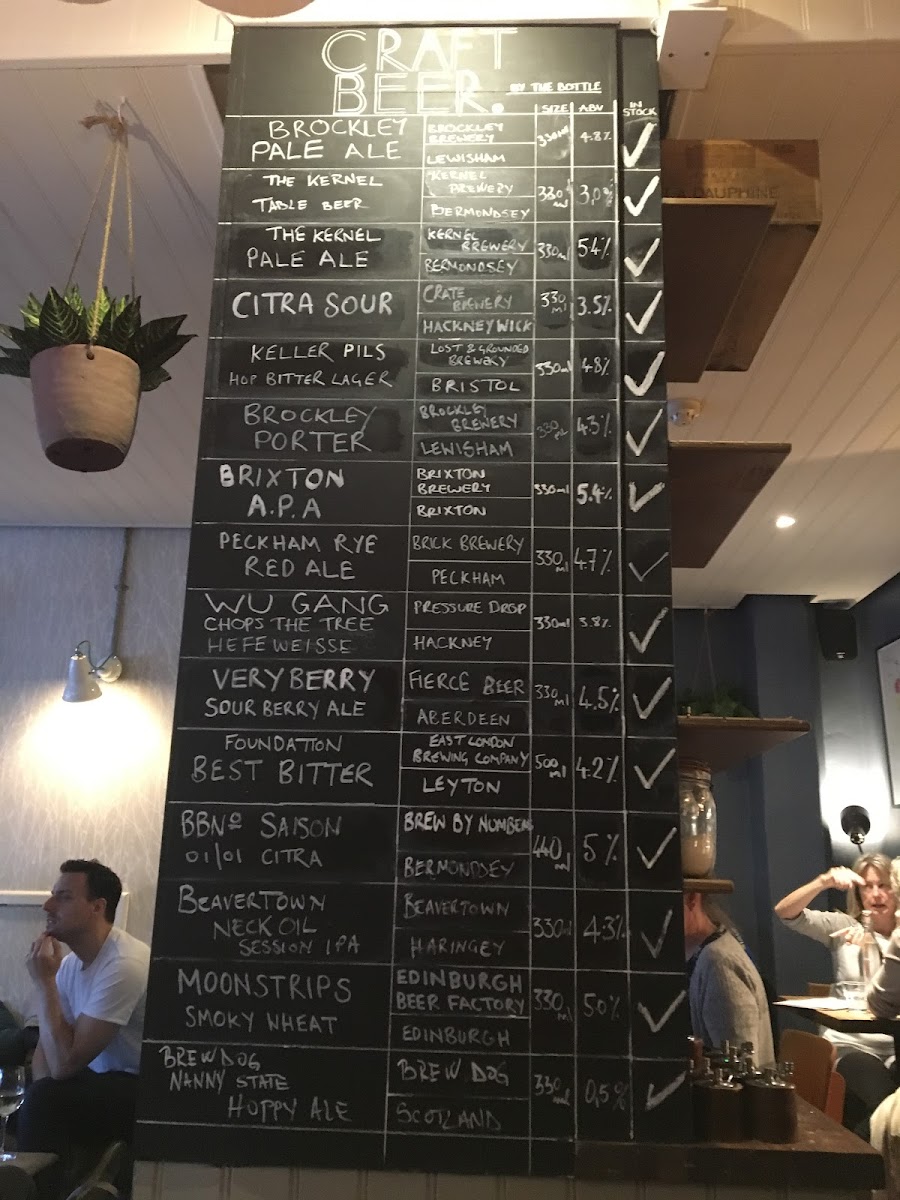 CRAFT
BEER. BY THE BOTTLE
SIZE ABV IN STOCK
BROCKLEY
PALE ALE
BROCKLEY
BREWERY
LEWISHAM
330ml
4.8%
THE KERNEL
TABLE BEER
KERNEL
BREWERY
BERMONDSEY
330
ml
3,0%
THE KERNEL
PALE ALE
KERNEL
BREWERY
BERMONDSEY
330ml
5.4%
CITRA SOUR
CRATE
BREWERY
HACKNEY WICK
330
ml
3.5%
KELLER PILS
HOP BITTER LAGER
LOST & GROUNDED
BREWERY
BRISTOL
330ml
4.8%
BROCKLEY
PORTER
BROCKLEY
BREWERY
LEWISHAM
330ml
4.3%
BRIXTON
A.P.A
BRIXTON
BREWERY
BRIXTON
330ml
5.4%
PECKHAM RYE
RED ALE
BRICK BREWERY
PECKHAM
330
ml
4.7%
WU GANG
CHOPS THE TREE
HEFEWEISSE
PRESSURE DROP
HACKNEY
330ml
3.8%
VERY BERRY
SOUR BERRY ALE
FIERCE BEER
ABERDEEN
330
ml
4.5%
FOUNDATION
BEST BITTER
EAST LONDON
BREWING COMPANY
LEYTON
500
ml
4.2%
BBNº SAISON
01/01 CITRA
BREW BY NUMBERS
BERMONDSEY
440
ml
5%
BEAVERTOWN
NECK OIL
SESSION IPA
BEAVERTOWN
HARINGEY
330ml
4.3%
MOONSTRIPS
SMOKY WHEAT
EDINBURGH
BEER FACTORY
EDINBURGH
330
ml
5.0%
BREWDOG
NANNY STATE
HOPPY ALE
BREW DOG
SCOTLAND
330
ml
0,5%
DAUPHINE